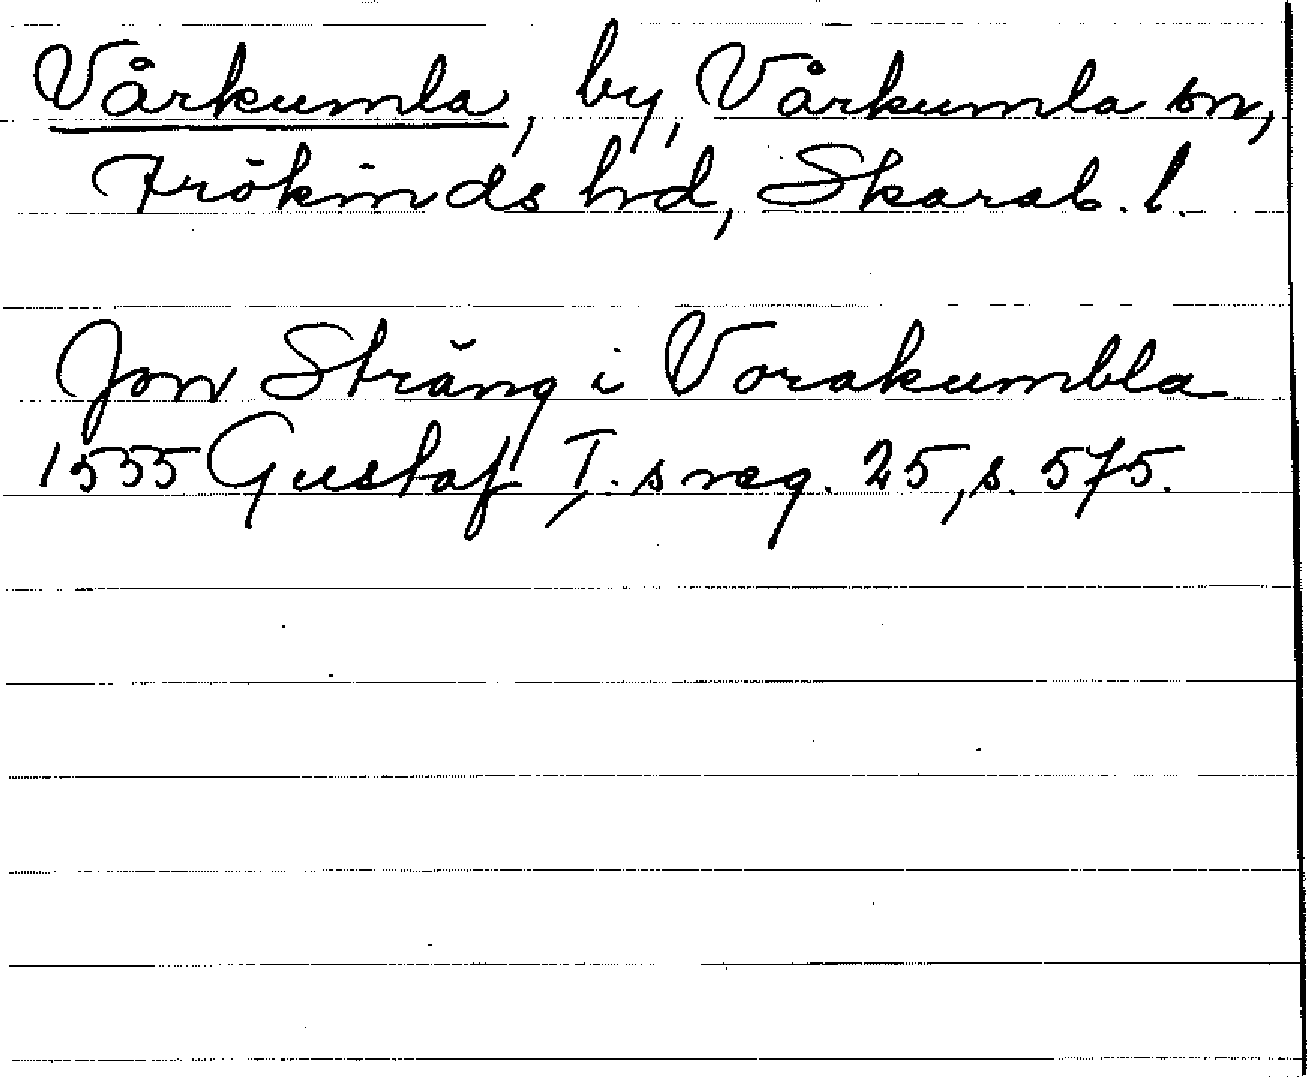 Vårkumla, by, Vårkumla sn,
Frökinds hd, Skarab. l.
Jon Sträng i Vorakumbla
1555 Gustaf I.s reg. 25, s. 575.